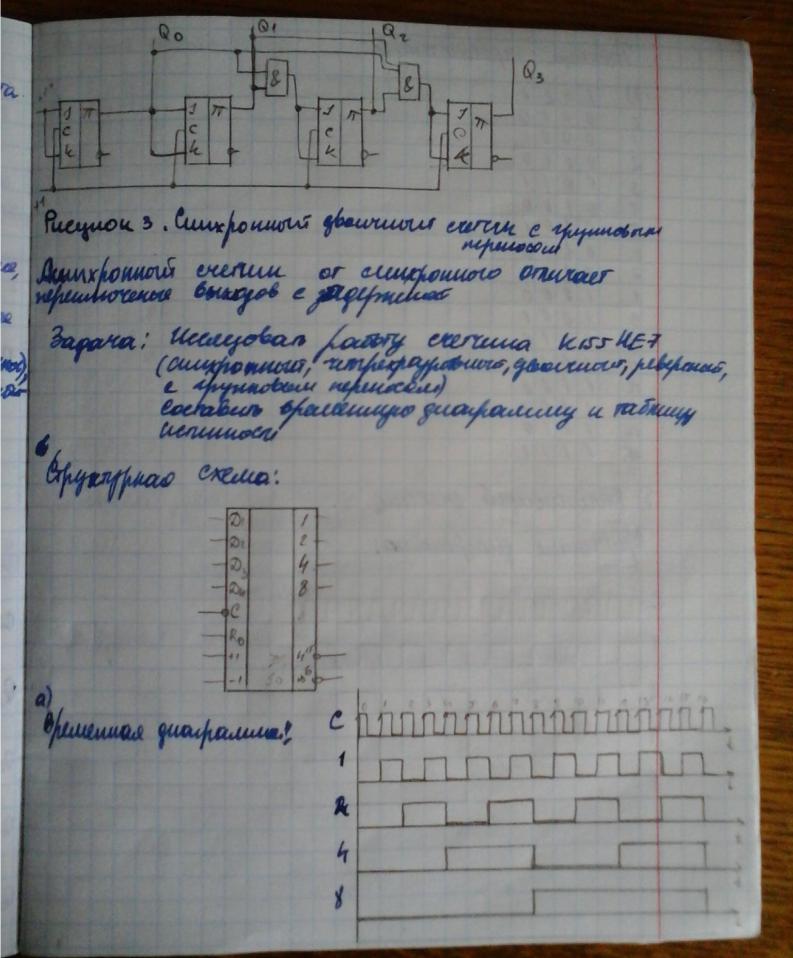 Q0 Q1 Q2
Q3
& &
J П J П J П J П
C C C C
K K K K
Рисунок 3. Синхронный двоичный счетчик с групповым
переносом
Асинхронный счетчик от синхронного отличает
переключение выходов с задержкой
Задача: Исследовать работу счетчика К155ИЕ7
(синхронный, четырехразрядный, двоичный, реверсный,
с групповым переносом)
Составить временную диаграмму и таблицу
истинности
Структурная схема:
D1 1
D2 2
D3 4
D4 8
C
R0
+1
-1
а)
Временная диаграмма:
C
1
2
4
8